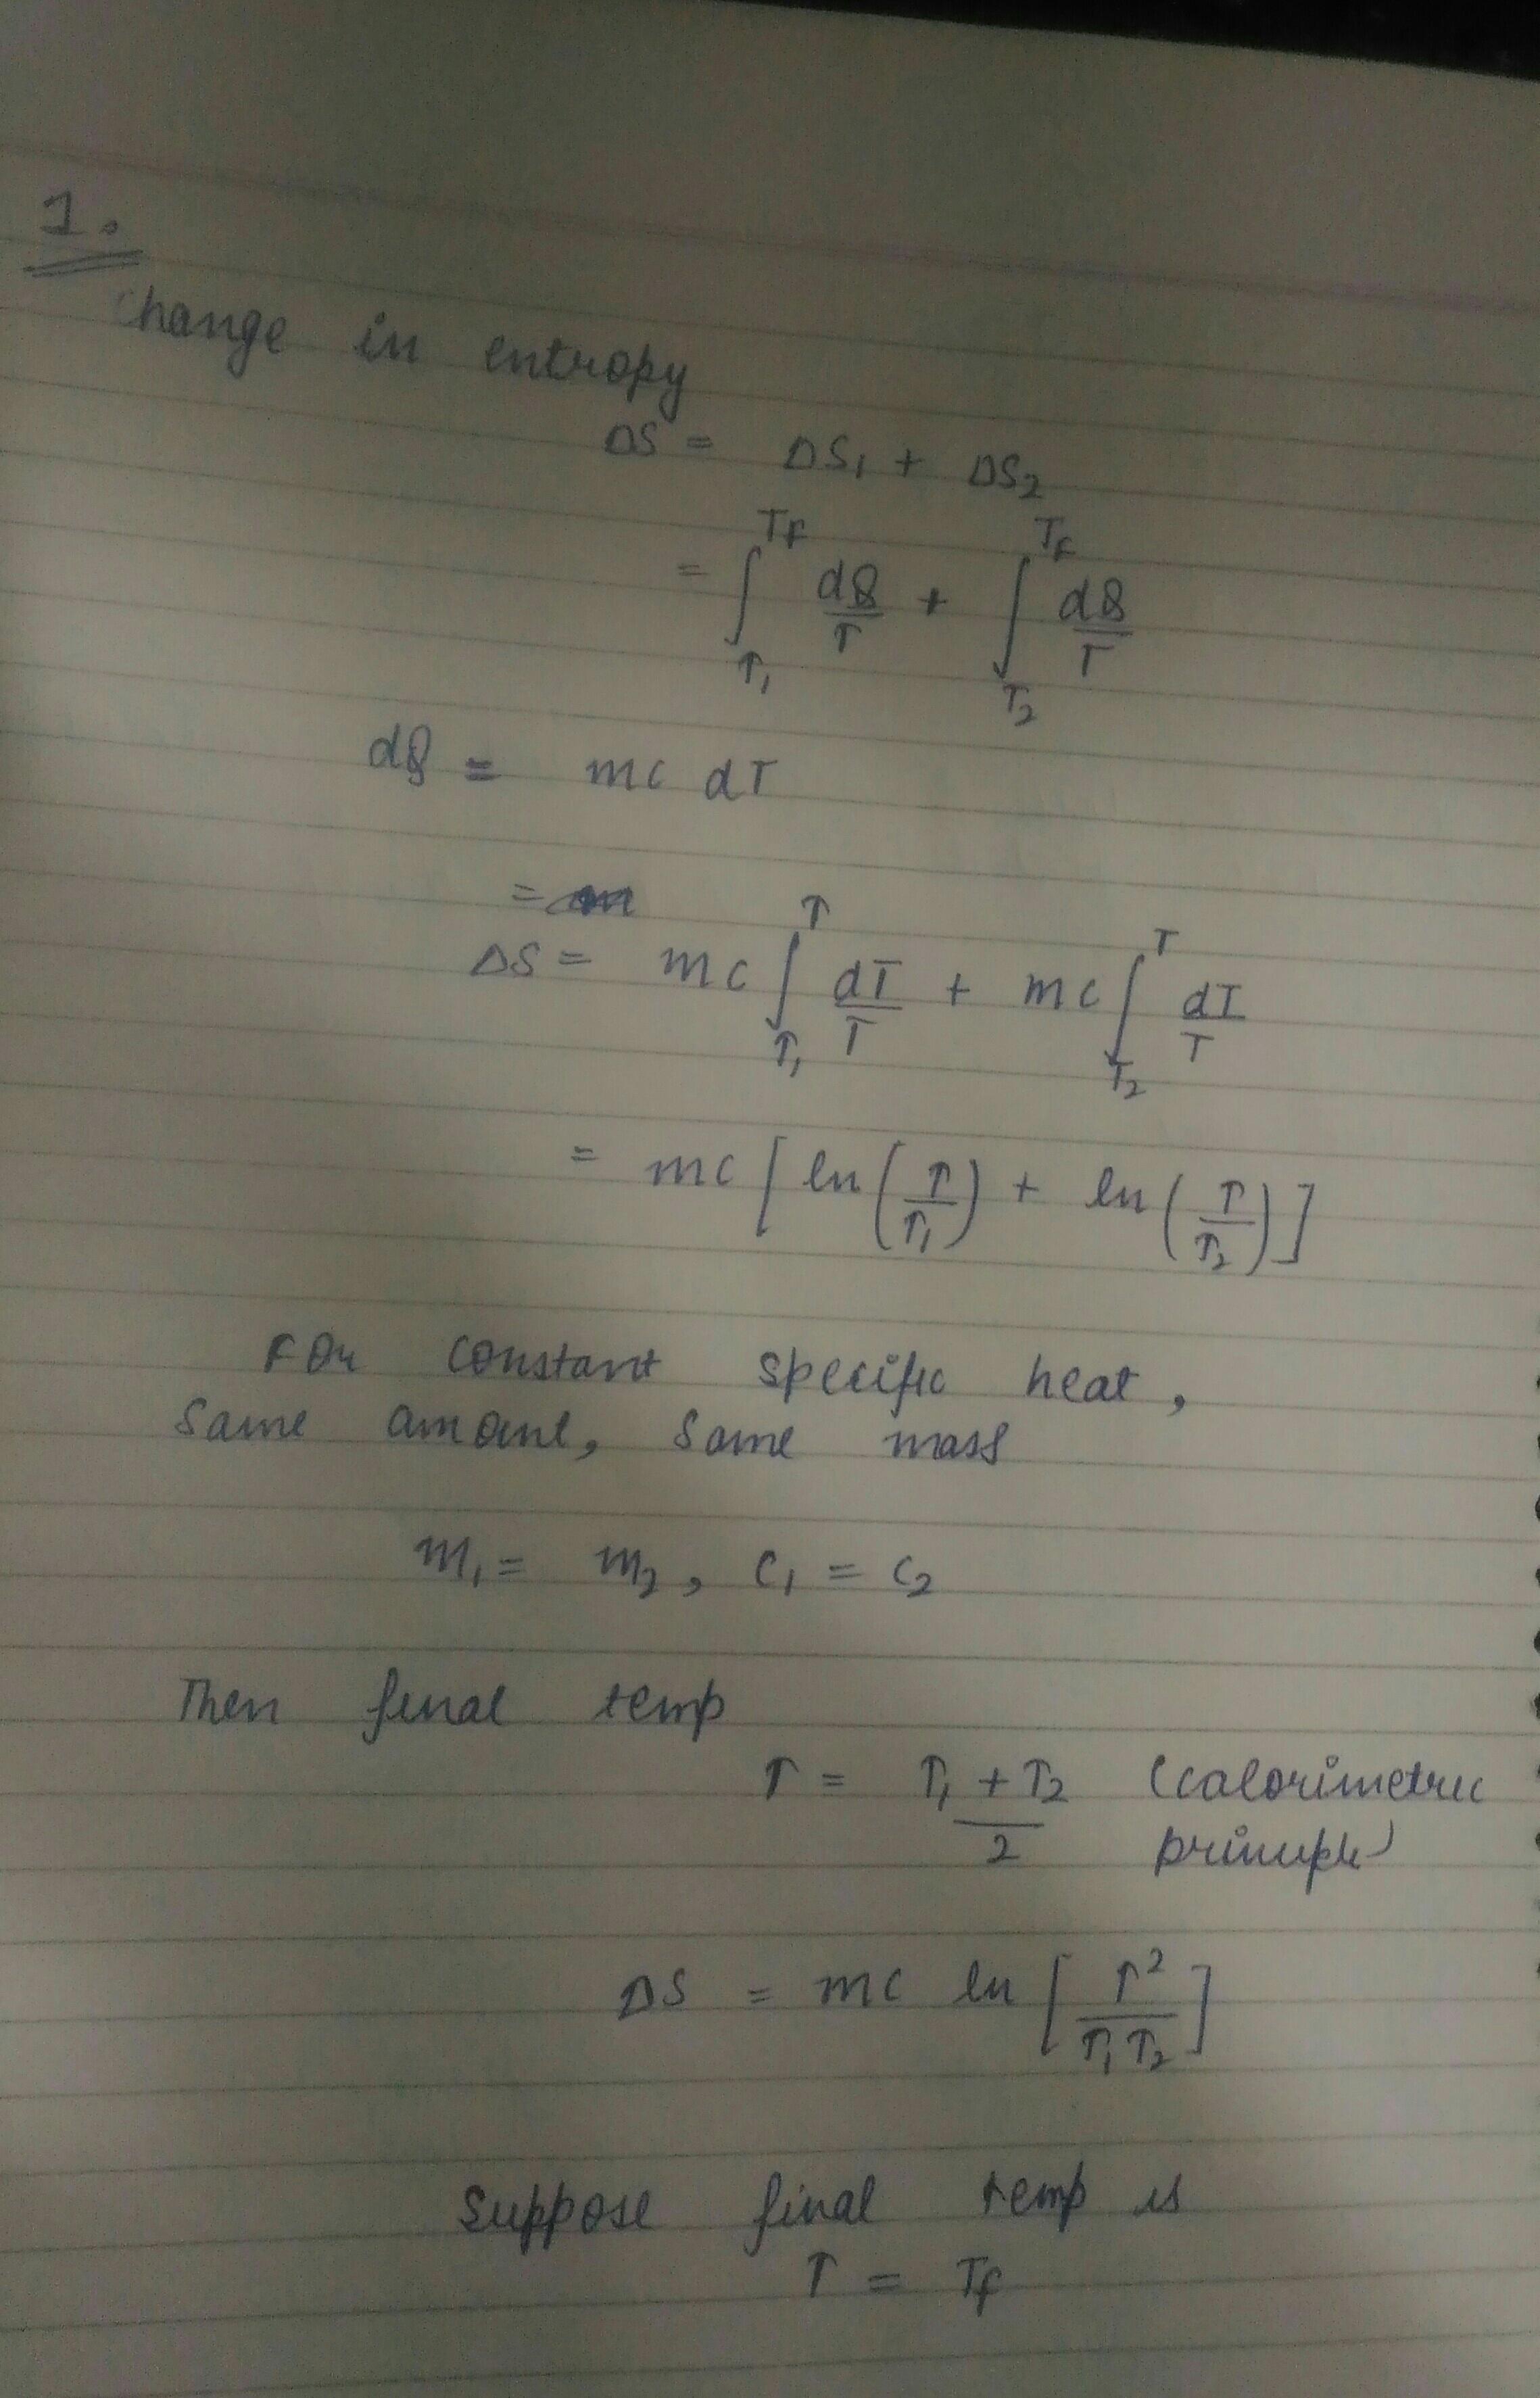 1.
Change in entropy
ΔS = ΔS₁ + ΔS₂
= ∫_{T₁}^{Tf} dQ/T + ∫_{T₂}^{Tf} dQ/T
dQ = mc dT
=
ΔS = mc ∫_{T₁}^{T} dT/T + mc ∫_{T₂}^{T} dT/T
= mc [ ln (T/T₁) + ln (T/T₂) ]
For constant specific heat,
same amount, same mass
m₁ = m₂, c₁ = c₂
Then final temp
T = (T₁ + T₂)/2 (calorimetric
principle)
ΔS = mc ln [ T²/(T₁ T₂) ]
Suppose final temp is
T = Tf